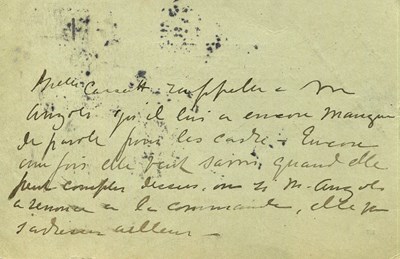 Melle Cassatt rappelle a M
Anglès qu'il lui a encore manqué
de parole pour les cadres. Encore
une fois elle veut savoir quand elle
peut compter dessus, ou si M. Anglès
a renoncé a la commande, elle
s'adresser ailleurs —